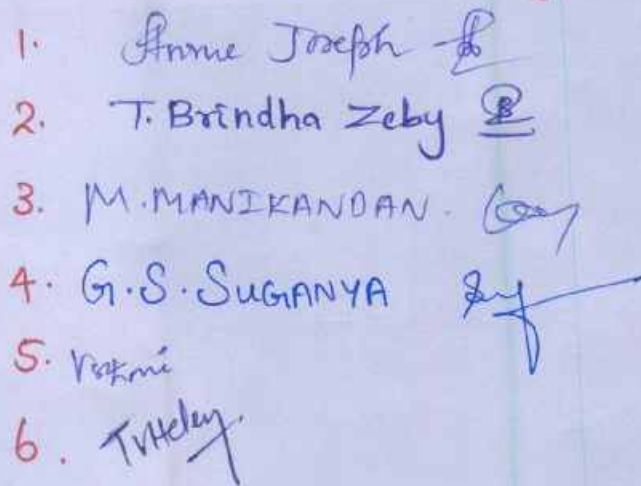 1. Annie Joseph
2. T. Brindha Zeby
3. M. MANIKANDAN.
4. G. S. SUGANYA
5.
6.